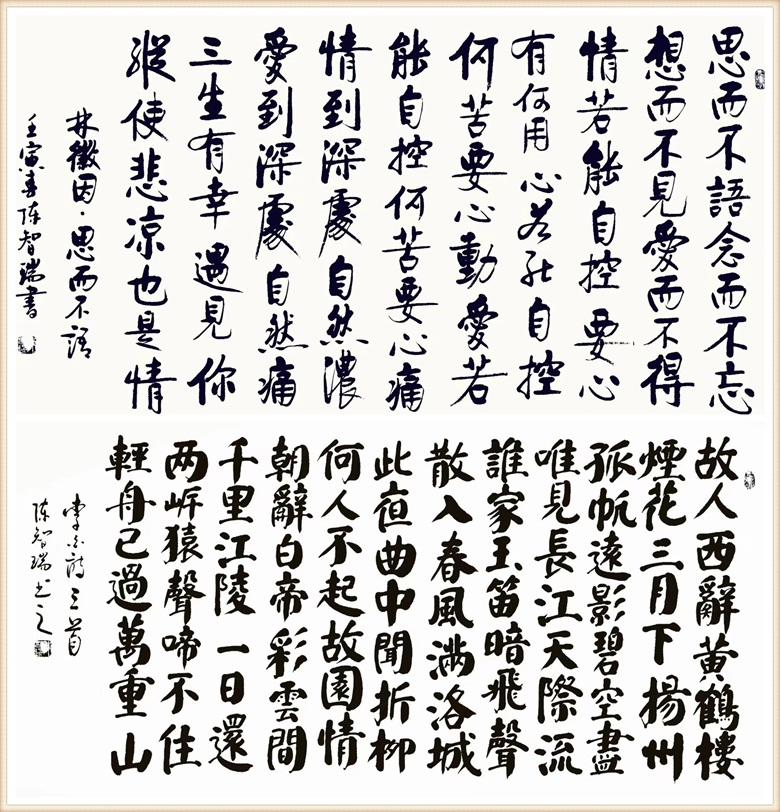 思而不語念而不忘
想而不見愛而不得
情若能自控要心
有何用心若能自控
何苦要心動愛若
能自控何苦要心痛
情到深處自然濃
愛到深處自然痛
三生有幸遇見你
縱使悲凉也是情
林徽因·思而不語
壬寅春陈智瑞書
故人西辭黃鶴樓
煙花三月下揚州
孤帆遠影碧空盡
唯見長江天際流
誰家玉笛暗飛聲
散入春風滿洛城
此夜曲中聞折柳
何人不起故園情
朝辭白帝彩雲間
千里江陵一日還
两岍猿聲啼不住
輕舟已過萬重山
李白詩三首
陈智瑞书之